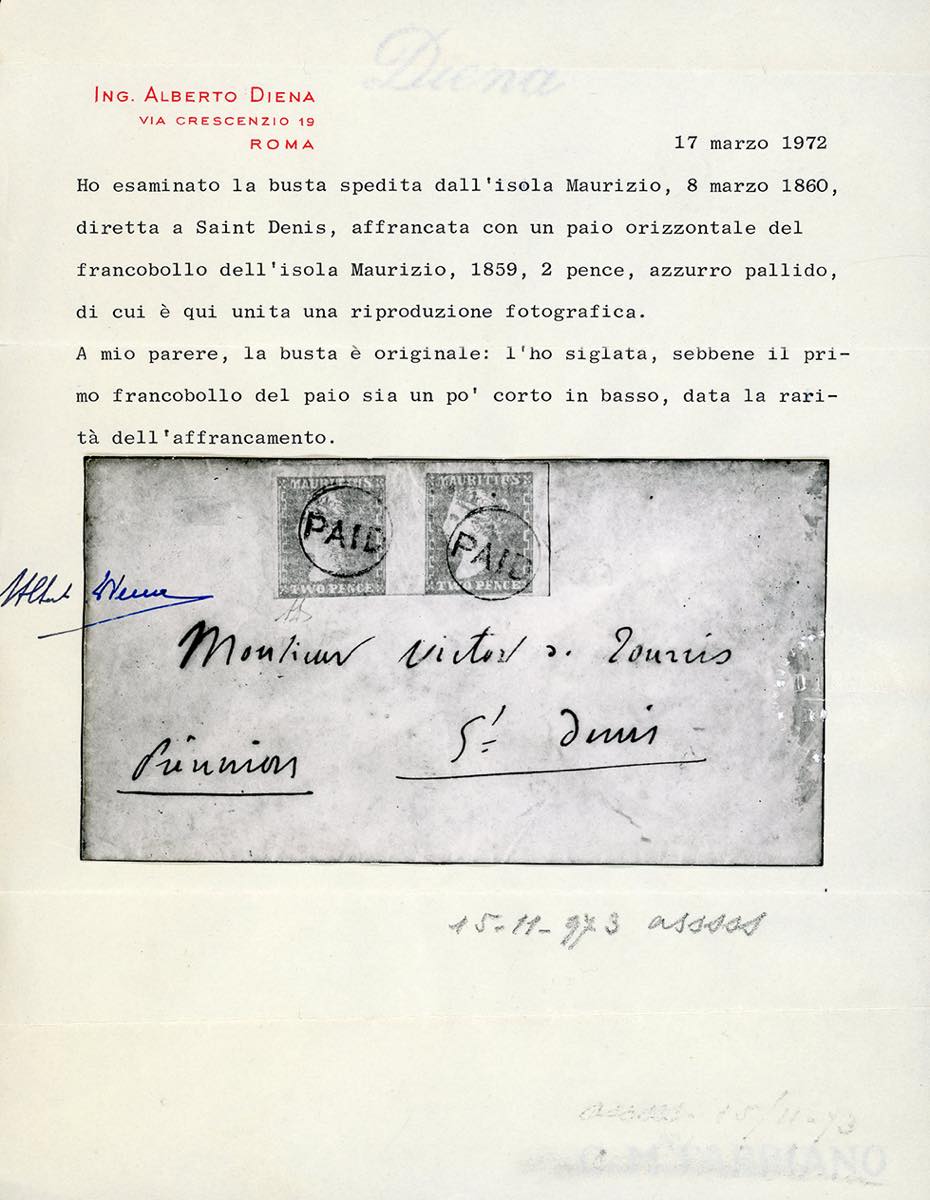 Diena
ING. ALBERTO DIENA
VIA CRESCENZIO 19
ROMA
17 marzo 1972
Ho esaminato la busta spedita dall'isola Maurizio, 8 marzo 1860,
diretta a Saint Denis, affrancata con un paio orizzontale del
francobollo dell'isola Maurizio, 1859, 2 pence, azzurro pallido,
di cui è qui unita una riproduzione fotografica.
A mio parere, la busta è originale: l'ho siglata, sebbene il pri-
mo francobollo del paio sia un po' corto in basso, data la rari-
tà dell'affrancamento.
MAURITIUS MAURITIUS
PAID PAID
TWO PENCE TWO PENCE
Alberto Diena
Monsieur Victor
St Denis
Réunion
15-11-973 asssss
15/11-73